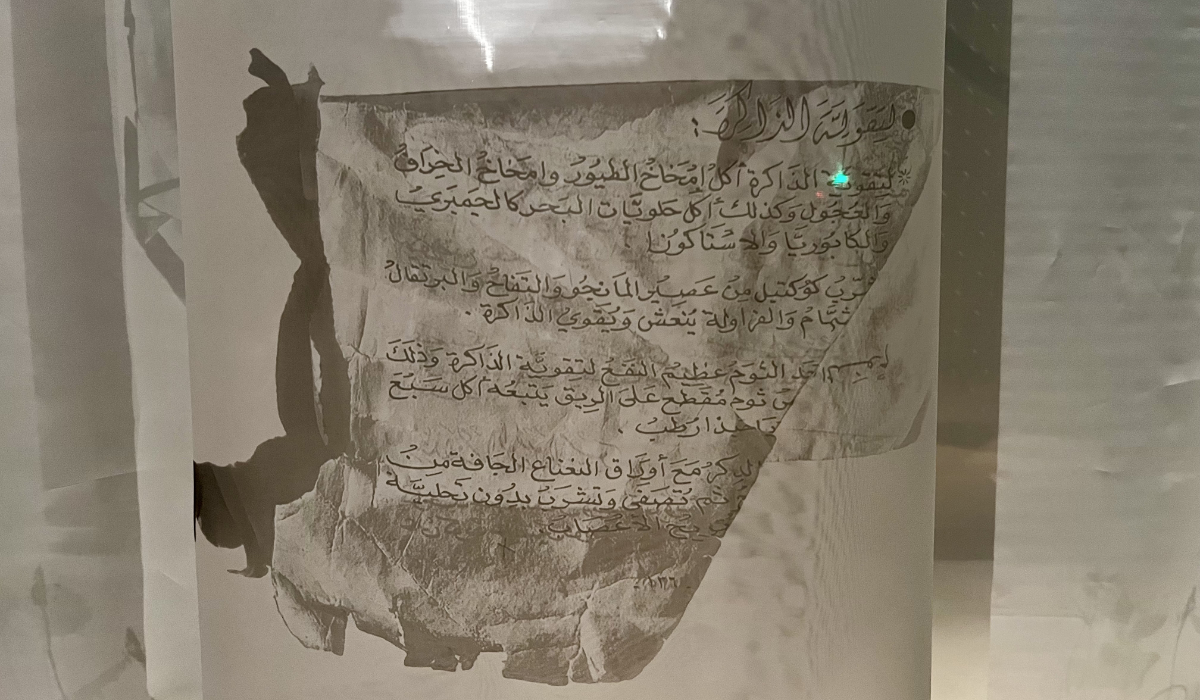 ● لِتَقْوِيَّةِ الذَّاكِرَةِ :
* لتقوية الذاكرة أكل إمْخَاخْ الطيُورْ وامخاخ الخِرَافْ
والعُجُول وكذلك أكل حلويَّات البَحر كالجَمْبَري
والكابُوريَّا والاسْتاكوزا .
شُربْ كوكتيل من عصير المانجو والتفاح والبرتقال
شمَّام والفراولة يُنعش ويُقوي الذاكرة .
الثوم عظيم النفع لتقويَّة الذاكرة وذلك
ثوم مُقَطع على الريق يتبعُه أكل سَبْعْ
رُطبْ .
مَع أوراق النعناع الجافة من
ثم تُصَفى وتشربْ بدُون تحليَّة